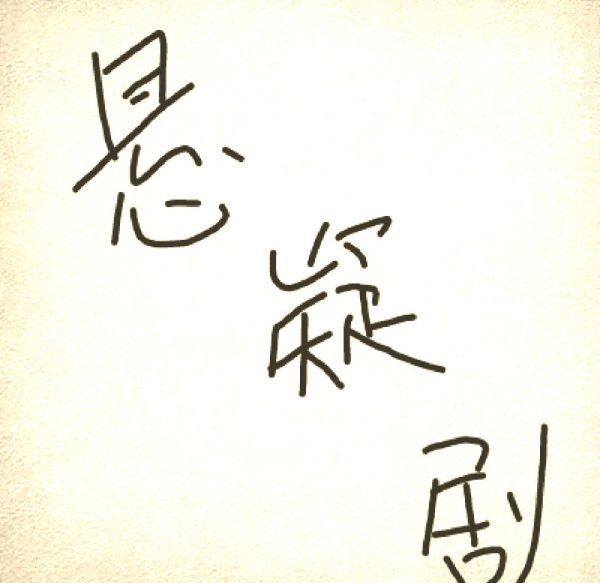 悬
疑
剧